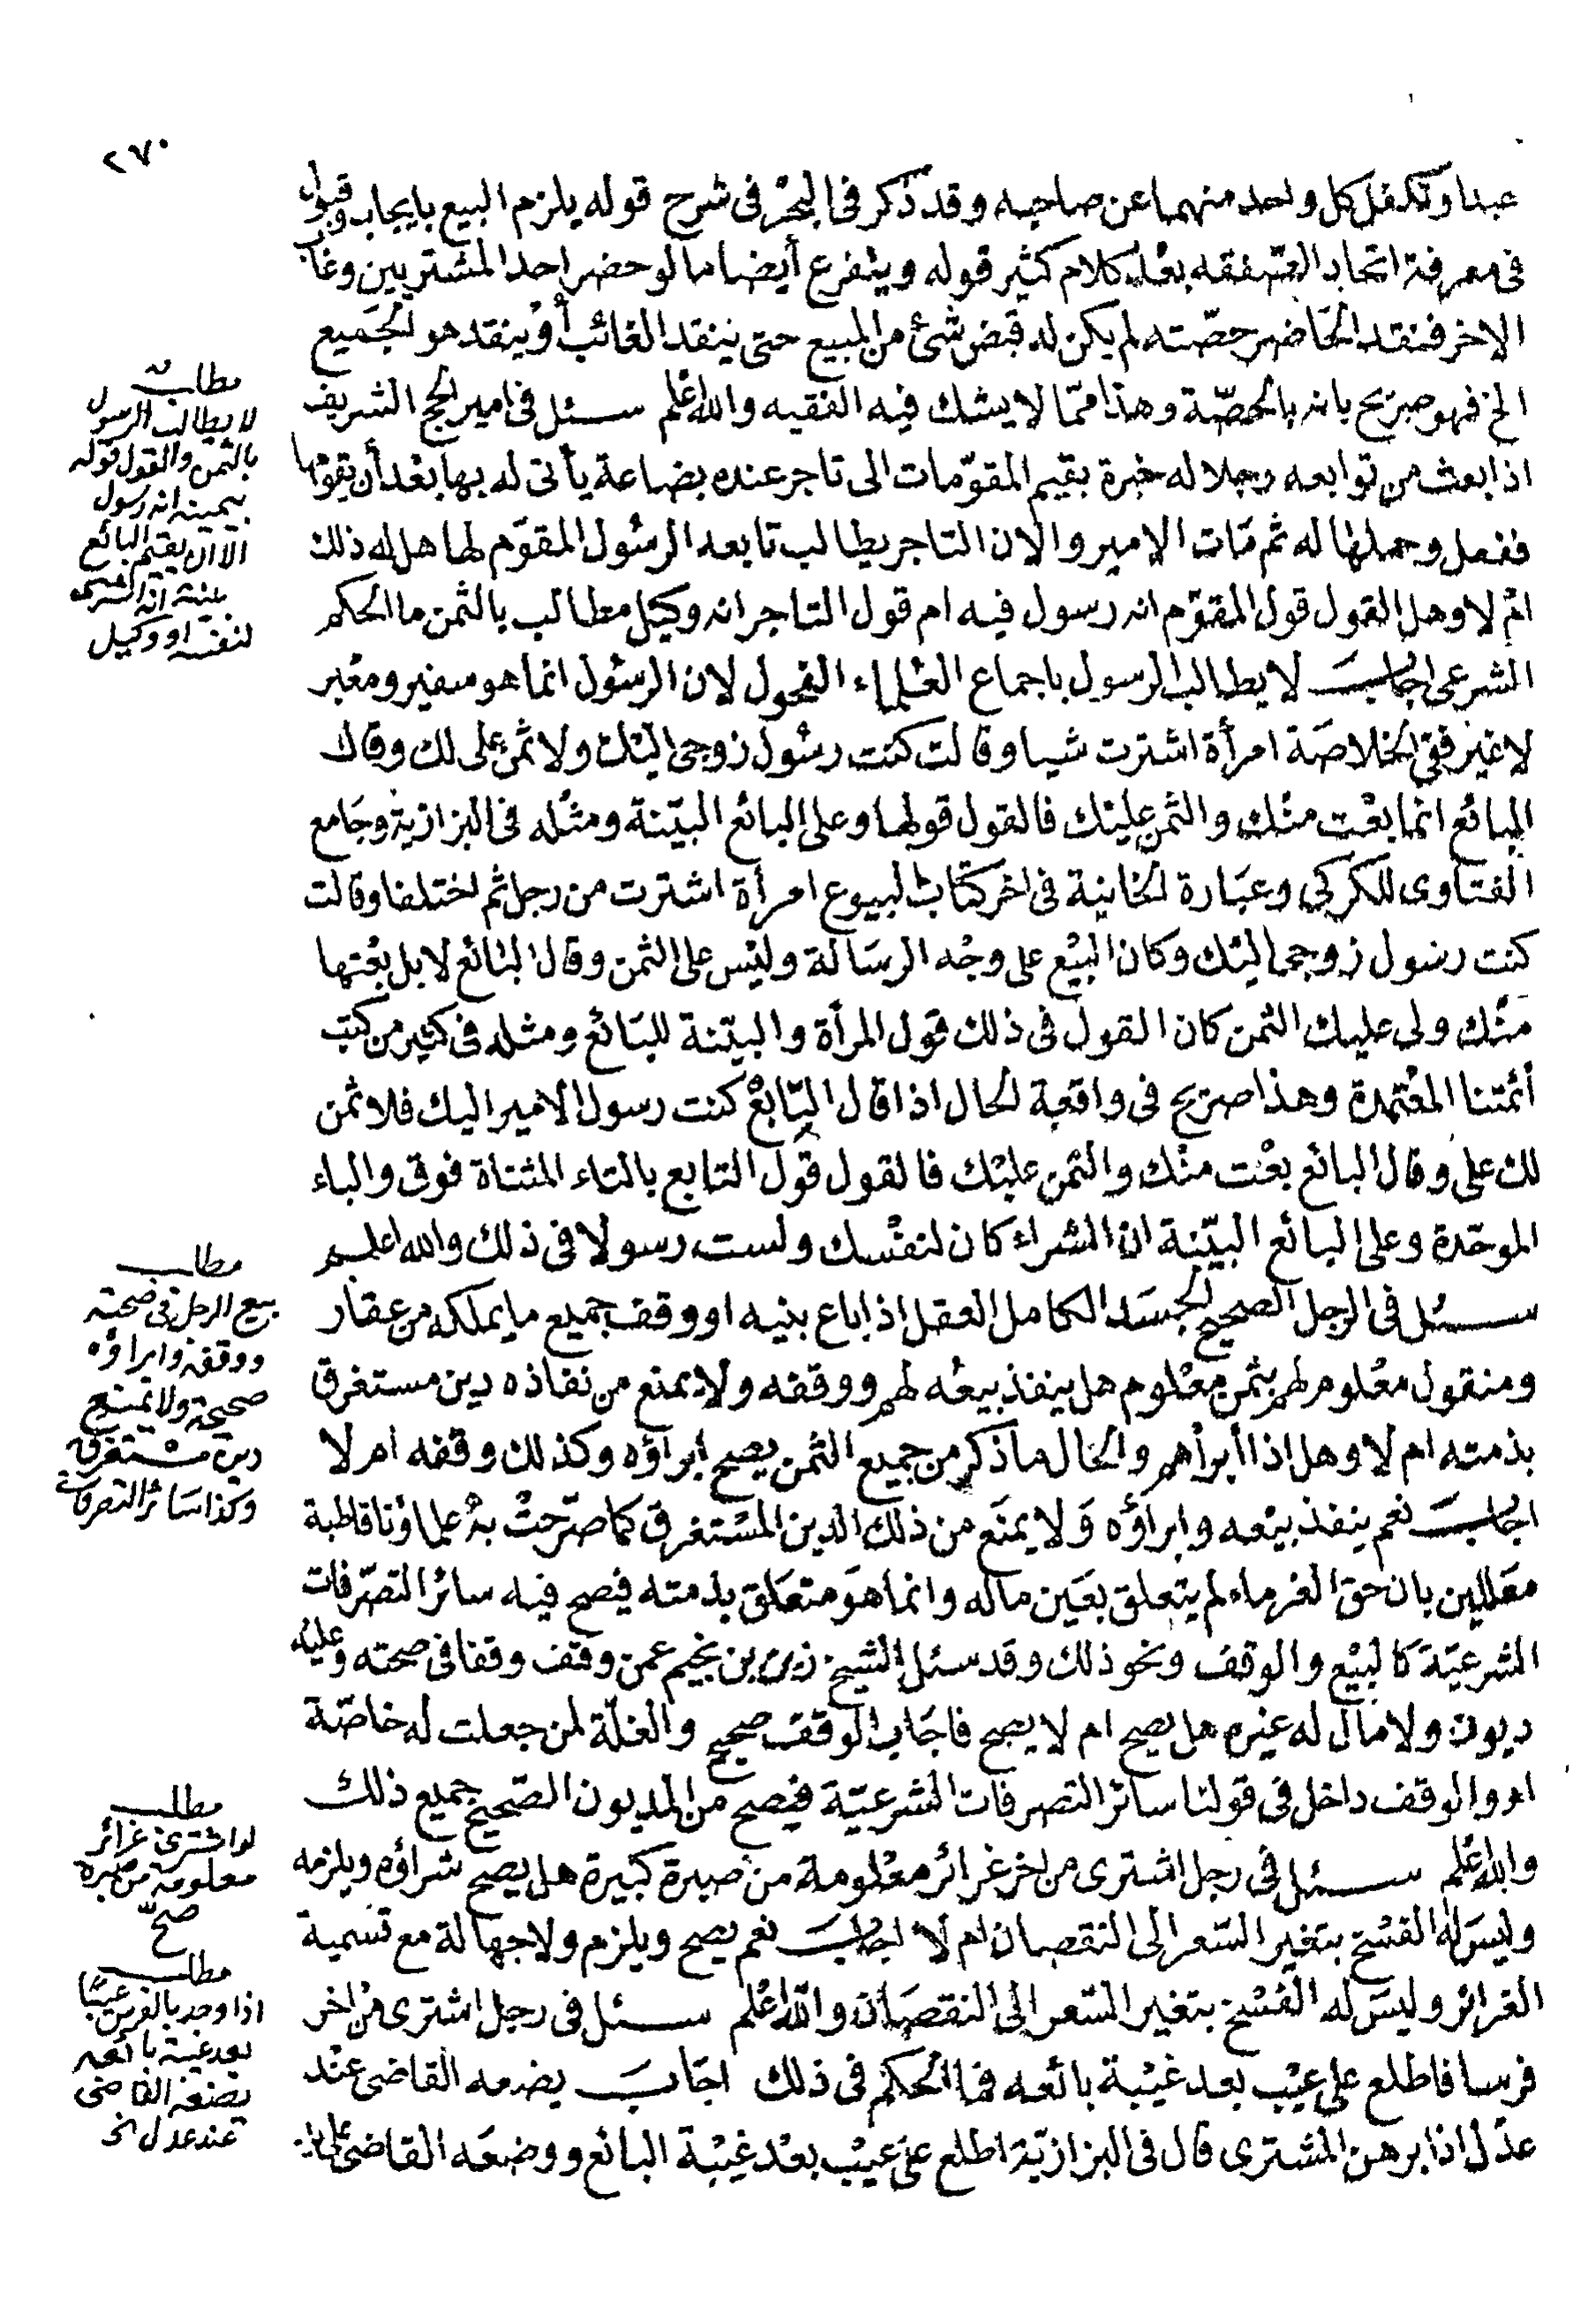 ٢٧٠
عبدا وتكفل كل واحد منهما عن صاحبه وقد ذكر في البحر في شرح قوله يلزم البيع بايجاب وقبول
في معرفة اتحاد الصفقه بعد كلام كثير قوله ويتفرع أيضا ما لو حضر احد المشتريين وغاب
الاخر فنقد الحاضر حصّته لم يكن له قبض شئ من المبيع حتى ينقد الغائب أو ينقد هو الجميع
الخ فهو صريح بانه بالحصّة وهذا ممّا لا يشك فيه الفقيه والله اعلم سئل في امير الحج الشريف
اذا بعث من توابعه رجلا له خبرة بقيم المقوّمات الى تاجر عنده بضاعة يأتي له بها بعد أن يقوّمها
ففعل وحملها له ثم مات الامير والان التاجر يطالب تابعه الرسول المقوّم لها هل له ذلك
ام لا وهل القول قول المقوّم انه رسول فيه ام قول التاجر انه وكيل مطالب بالثمن ما الحكم
الشرعي اجاب لا يطالب الرسول باجماع العلماء الفحول لان الرسول انما هو سفير ومعبر
لا غير ففي الخلاصة امرأة اشترت شيا وقالت كنت رسول زوجي اليك ولا ثمن علي لك وقال
البائع انما بعت منك والثمن عليك فالقول قولها وعلى البائع البيّنة ومثله في البزازية وجامع
الفتاوى للكركي وعبارة الخانية في اخر كتاب البيوع امرأة اشترت من رجل ثم اختلفا وقالت
كنت رسول زوجي اليك وكان البيع على وجه الرسالة وليس علي الثمن وقال البائع لا بل بعتها
منك ولي عليك الثمن كان القول في ذلك قول المرأة والبيّنة للبائع ومثله في كثير من كتب
أئمتنا المعتمدة وهذا صريح في واقعة الحال اذا قال التابع كنت رسول الامير اليك فلا ثمن
لك علي وقال البائع بعت منك والثمن عليك فالقول قول التابع بالتاء المثناة فوق والباء
الموحّدة وعلى البائع البيّنة ان الشراء كان لنفسك ولست رسولا في ذلك والله اعلم
سئل في الرجل الصحيح الجسد الكامل العقل اذا باع بنيه او وقف جميع ما يملكه من عقار
ومنقول معلوم لهم بثمن معلوم هل ينفذ بيعه لهم ووقفه ولا يمنع من نفاذه دين مستغرق
بذمته ام لا وهل اذا أبرأهم والحال ما ذكر من جميع الثمن يصح ابراؤه وكذلك وقفه ام لا
اجاب نعم ينفذ بيعه وابراؤه ولا يمنع من ذلك الدين المستغرق كما صرّحت به علماؤنا قاطبة
معللين بان حق الغرماء لم يتعلق بعين ماله وانما هو متعلق بذمته فيصح فيه سائر التصرّفات
الشرعيّة كالبيع والوقف ونحو ذلك وقد سئل الشيخ زين بن نجيم عمن وقف وقفا في صحته وعليه
ديون ولا مال له غيره هل يصح ام لا يصح فاجاب الوقف صحيح والغلّة لمن جعلت له خاصّة
اه والوقف داخل في قولنا سائر التصرفات الشرعيّة فيصح من المديون الصحيح جميع ذلك
والله اعلم سئل في رجل اشترى من اخر غرائر معلومة من صبرة كبيرة هل يصح شراؤه ويلزمه
وليس له الفسخ بتغير السعر الى النقصان ام لا اجاب نعم يصح ويلزم ولا جهالة مع تسمية
الغرائر وليس له الفسخ بتغير السّعر الى النقصان والله اعلم سئل في رجل اشترى من اخر
فرسا فاطلع على عيب بعد غيبة بائعه فما الحكم في ذلك اجاب يضعه القاضي عند
عدل اذا برهن المشترى قال في البزازيّة اطلع على عيب بعد غيبة البائع ووضعه القاضي
مطلب
لا يطالب الرسول
بالثمن والقول قوله
بيمينه انه رسول
الا ان يقيم البائع
بينة انه اشترى
لنفسه او وكيل
مطلب
بيع الرجل في صحته
ووقفه وابراؤه
صحيحة ولا يمنع
دين مستغرق
وكذا سائر التصرفات
مطلب
لو اشترى غرائر
معلومة من صبرة
صحّ
مطلب
اذا وجد بالفرس عيبًا
بعد غيبة بائعه
يضعه القاضي
عند عدل الخ